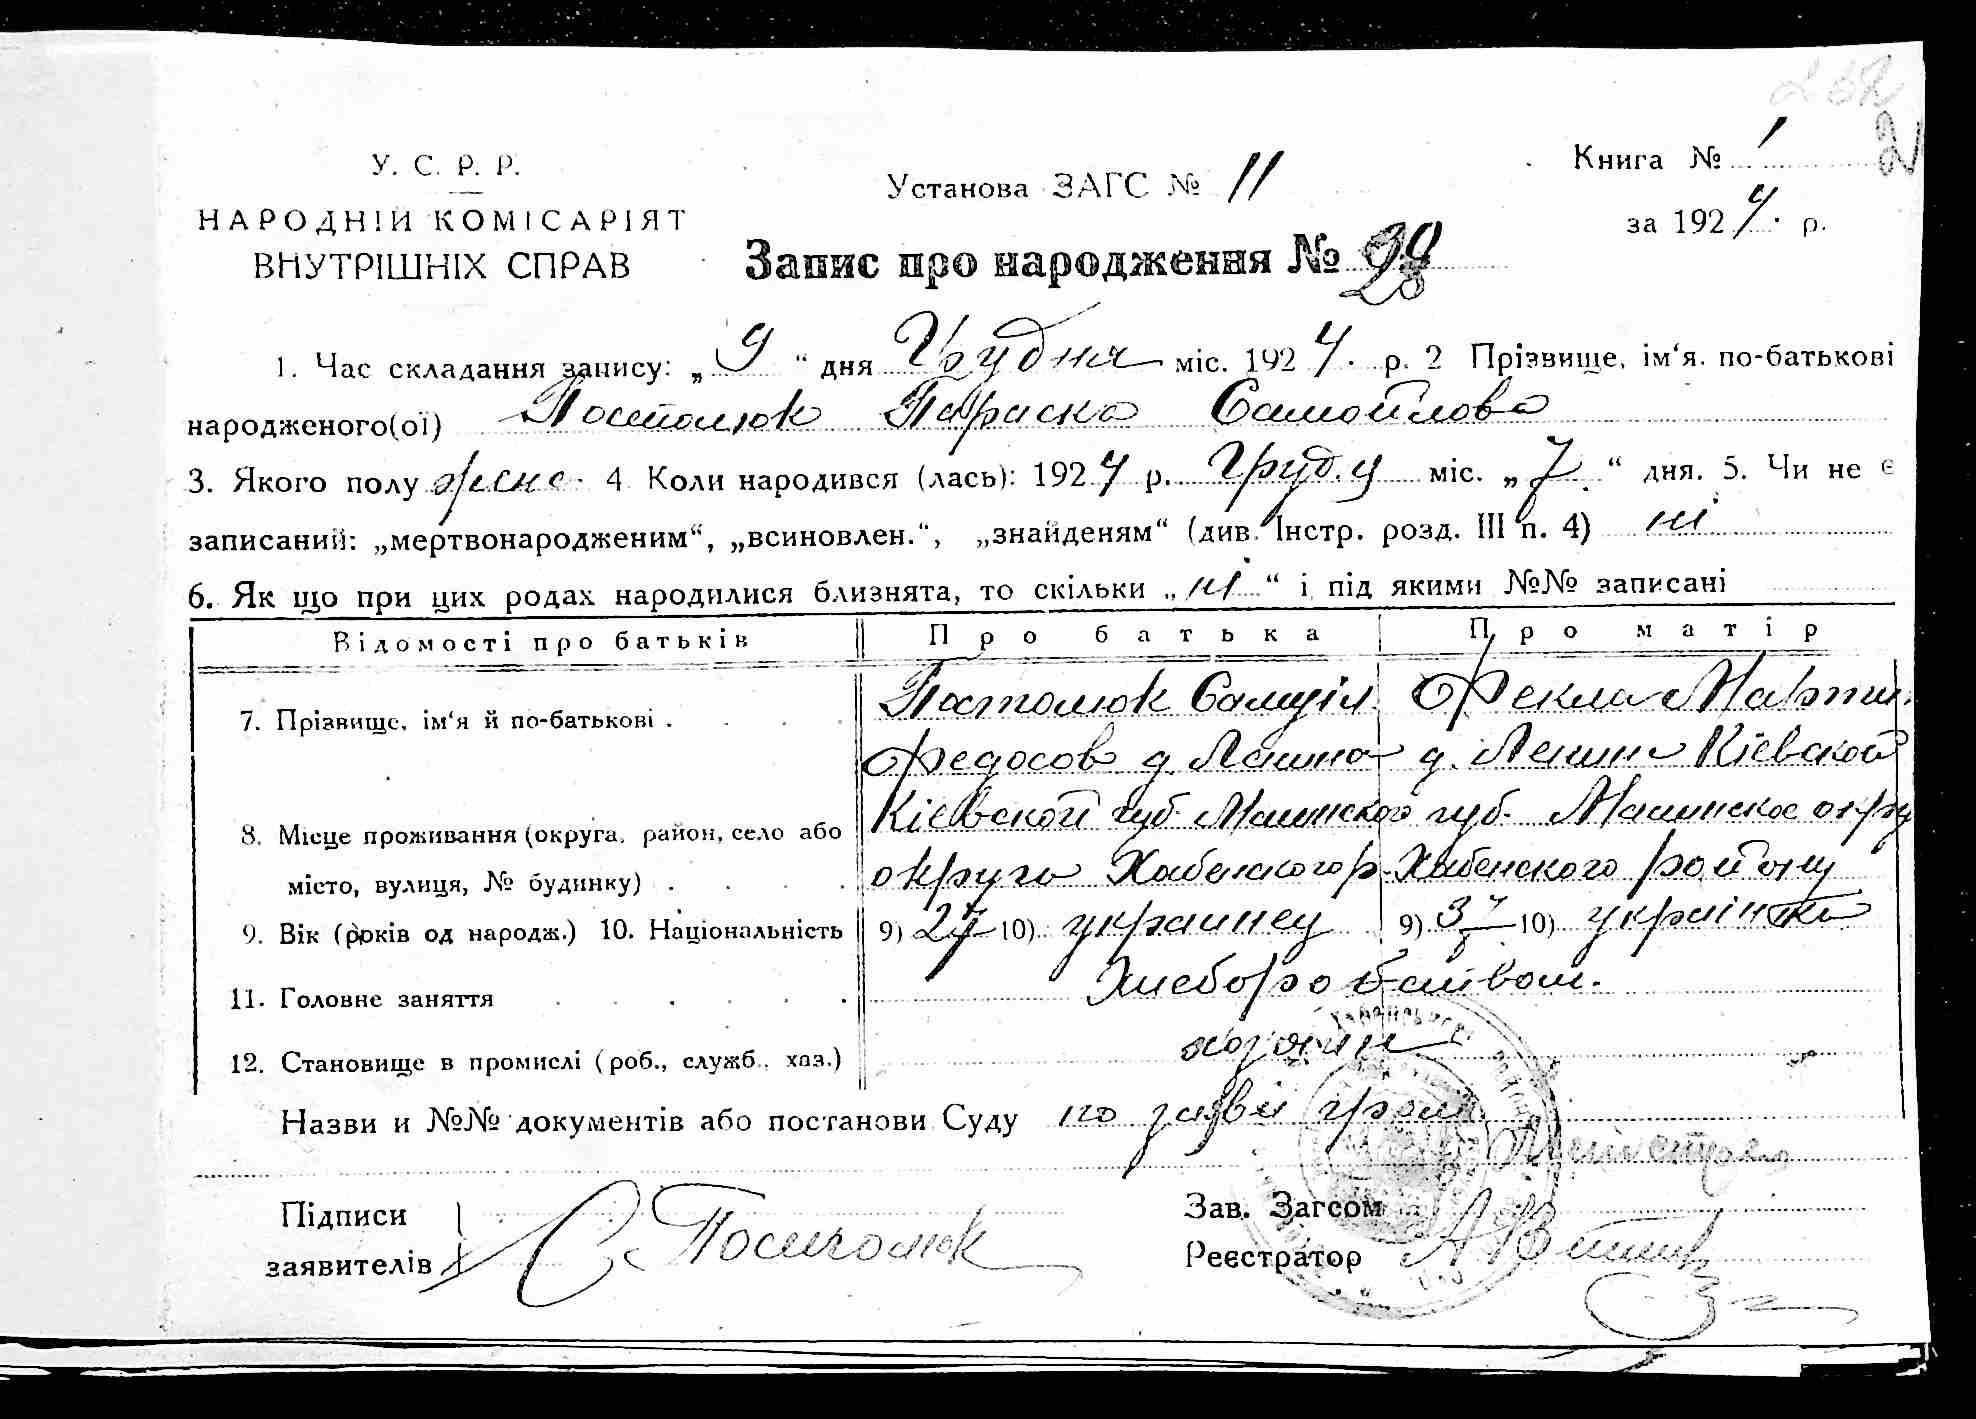 У. С. Р. Р.
НАРОДНІЙ КОМІСАРІЯТ
ВНУТРІШНІХ СПРАВ
Установа ЗАГС № 11
Книга № 1
2
за 1924. р.
Запис про народження № 28
1. Час складання запису: „9“ дня Грудня міс. 1924. р. 2 Прізвище, ім‘я. по-батькові
народженого(ої) Постолюк Параска Самойлова
3. Якого полу жено. 4 Коли народився (лась): 1924 р. Груд.я міс. „7“ дня. 5. Чи не є
записаний: „мертвонародженим“, „всиновлен.“, „знайденям“ (див. Інстр. розд. III п. 4) ні
6. Як що при цих родах народилися близнята, то скільки „ні“ і під якими №№ записані
Відомості про батьків Про батька Про матір
7. Прізвище, ім‘я й по-батькові . Постолюк Самуіл Фекла Мартин.
Федосов д. Ленина д. Ленина Кіевской
Кіевской губ. Малинского губ. Малинское окру
8. Місце проживання (округа, район, село або
місто, вулиця, № будинку) . округа Хабенского р. Хабенского району
9. Вік (років од народж.) 10. Національність 9) 27 10) украинец 9) 37 10) українка
11. Головне заняття Хлеборобством.
12. Становище в промислі (роб., служб., хаз.) хозяин
Назви и №№ документів або постанови Суду по заяві гром.
Підписи
заявителів С Постолюк
Зав. Загсом
Реєстратор